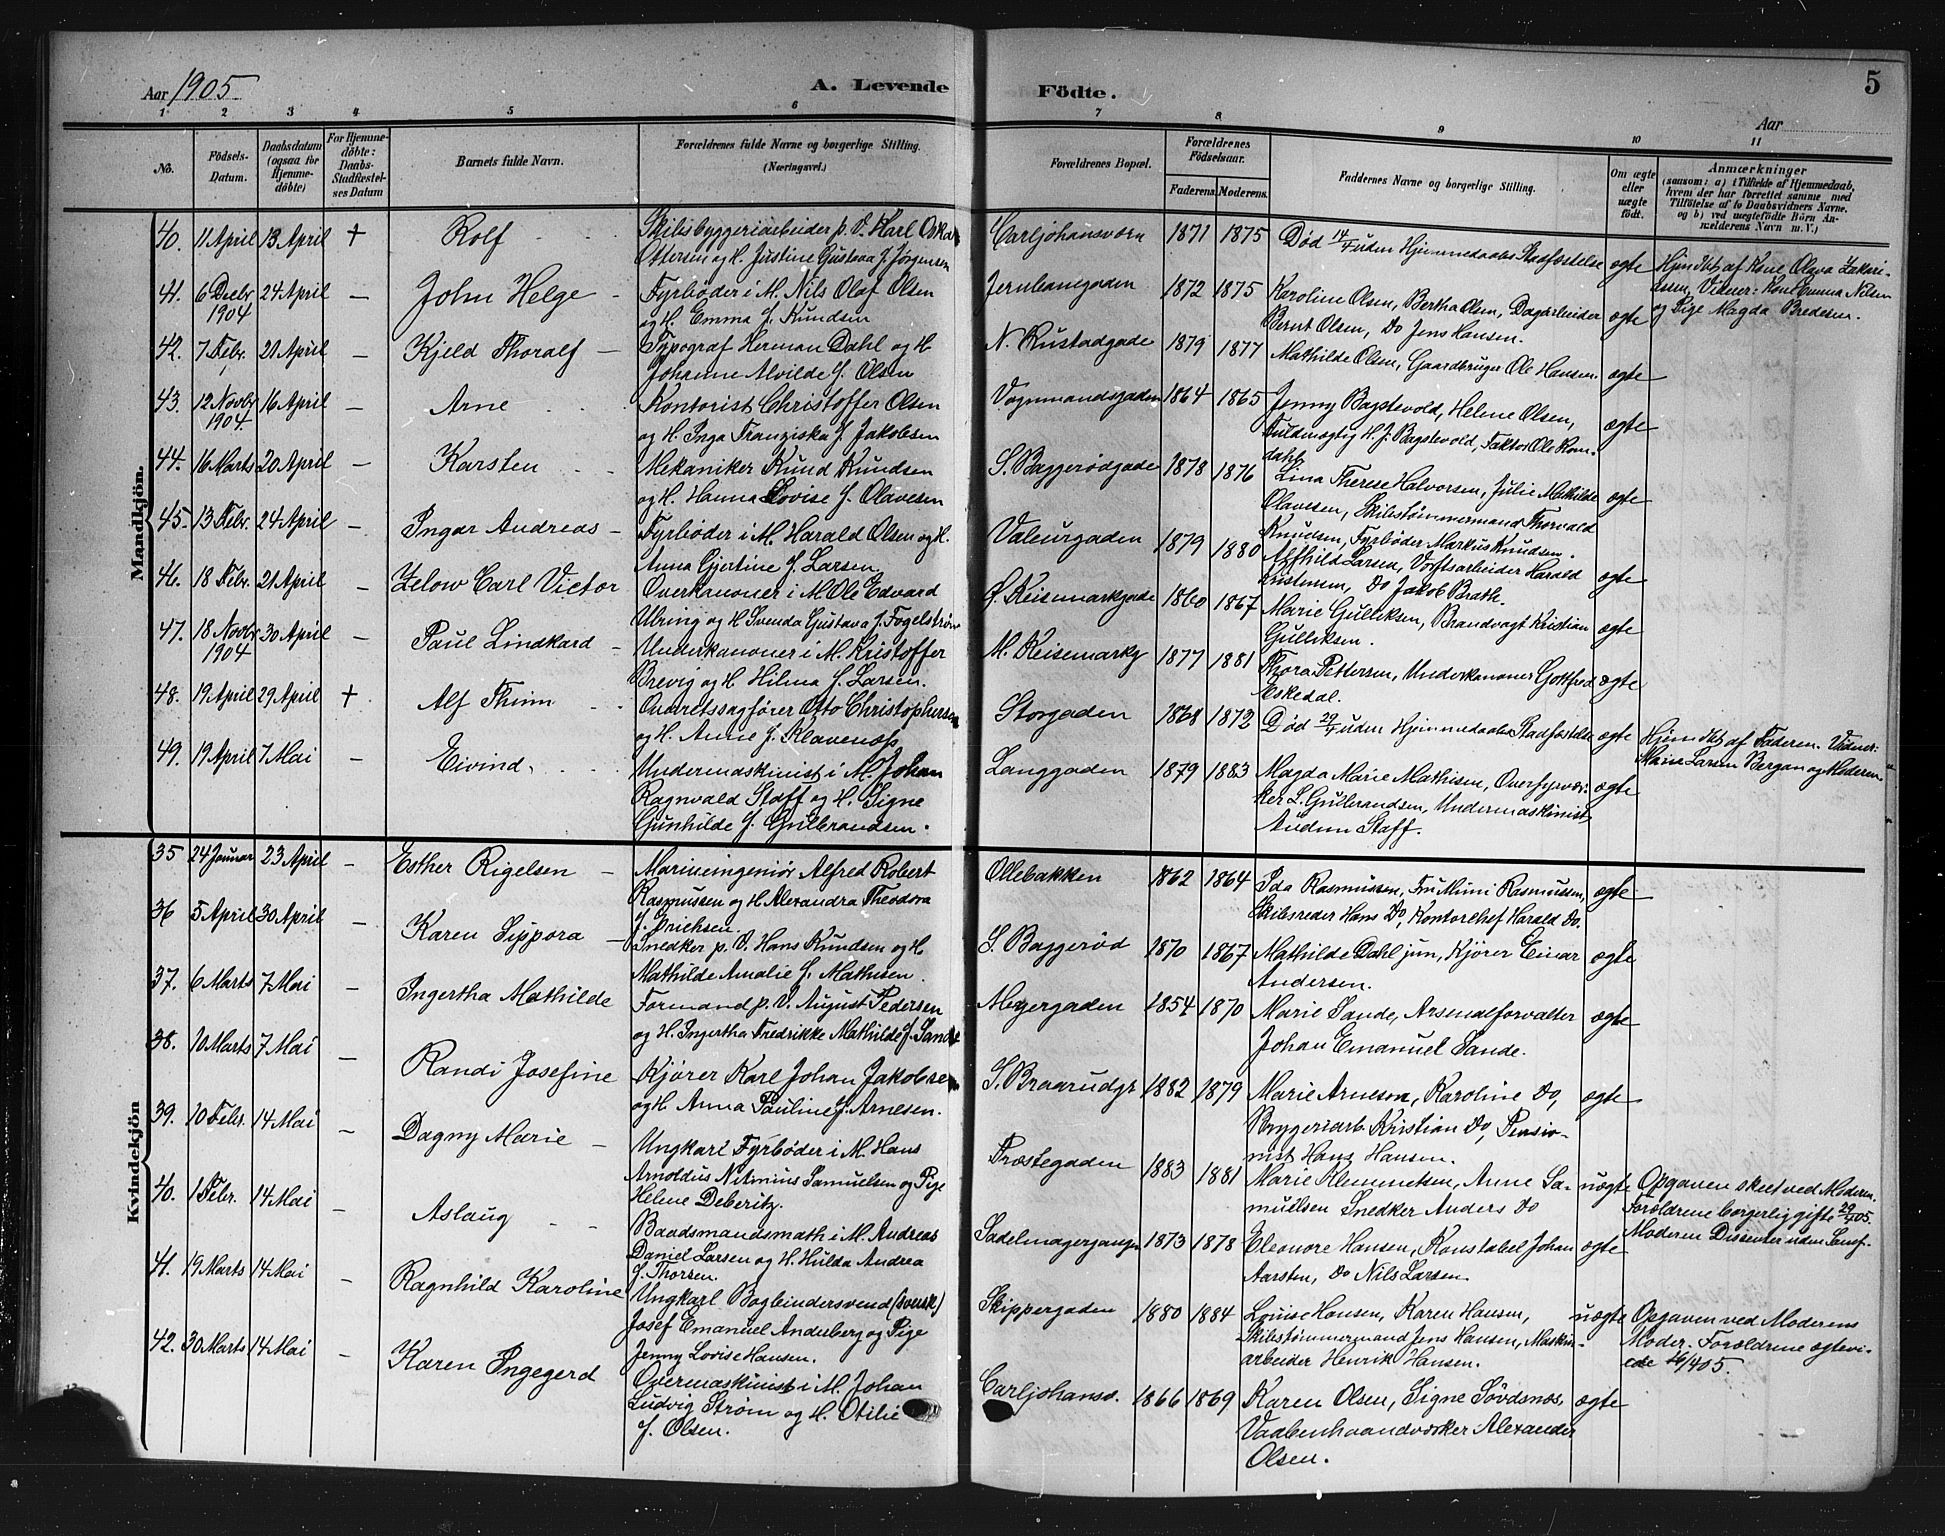 Aar 1905
A. Levende Födte.
5
Aar
1 2 3 4 5 6 7 8 9 10 11
No.
Födsels-Datum.
Daabsdatum (ogsaa for Hjemme-döbte)
For Hjemme-döbte: Daabs-Stadfæstel-ses Datum
Barnets fulde Navn.
Forældrenes fulde Navne og borgerlige Stilling.
(Næringsvei.)
Forældrenes Bopæl.
Forældrenes Födselsaar.
Faderens. Moderens.
Faddernes Navne og borgerlige Stilling.
Om ægte eller uægte födt.
Anmærkninger
(saasom: a) i Tilfælde af Hjemmedaab, hvem der har forrettet samme med Tilföielse af to Daabsvidners Navne. og b) ved uægtefödte Börn An-mælderens Navn m. V.)
Mandkjön.
40. 11 April 13 April + Rolf
Skibsbyggeriarbeider p. V. Karl Oskar
Ottersen og H. Justine Gustava f. Jörgensen
Carljohansværn 1871 1875
Död 14/4 uden Hjemmedaabs Stadfæstelse ægte
Hjemdbt af Kone Olava Zakari-
assen, Vidner: Kone Emma Nilsen
og Pige Magda Bredesen.
41. 6 Decbr 1904 24 April — John Helge
Fyrböder i M. Nils Olaf Olsen
og H. Emma f. Knudsen
Jernbanegaden 1872 1875
Karoline Olsen, Bertha Olsen, Dagarbeider
Bernt Olsen, Do Jens Hansen. ægte
42. 7 Febr. 21 April — Kjeld Thoralf
Typograf Herman Dahl og H.
Johanne Alvilde f. Olsen
N. Rustadgade 1879 1877
Mathilde Olsen, Gaardbruger Ole Hansen. ægte
43. 12 Novbr 1904 16 April — Arne
Kontorist Christoffer Olsen
og H. Inga Franziska f. Jakobsen
Vognmandsgaden 1864 1865
Jenny Bagstevold, Helene Olsen,
Fuldmægtig H. J. Bagstevold, Faktor Ole Rom-
dahl ægte
44. 16 Marts 20 April — Karsten
Mekaniker Knud Knudsen
og H. Hanna Lovise f. Olavesen
S. Baggerödgade 1878 1876
Lina Therese Halvorsen, Julie Mathilde
Olavesen, Skibstömmermand Thorvald
Knudsen, Fyrböder Markus Knudsen. ægte
45. 13 Febr. 24 April — Ingar Andreas
Fyrböder i M. Harald Olsen og H.
Anna Gjertine f. Larsen
Valeurgaden 1879 1880
Alfhild Larsen, Værftsarbeider Harald
Do Jakob Brath. ægte
46. 18 Febr. 21 April — Zelow Carl Victor
Overkanoner i M. Ole Edvard
Ulring og H. Svenda Gustava f. Fogelström
Ø. Keisemarkgade 1860 1867
Marie Gulliksen, Brandvagt Kristian
Gulliksen. ægte
47. 18 Novbr 1904 30 April — Paul Lindkard
Underkanoner i M. Kristoffer
Brevig og H. Hilma f. Larsen.
M. Keisemarkg 1877 1881
Thora Pettersen, Underkanoner Gottfred
Eskedal. ægte
48. 19 April 29 April + Alf Thim
Overretssagförer Otto Christophersen
og H. Anne f. Klavenæs
Storgaden 1868 1872
Död 29/4 uden Hjemmedaabs Stadfæstelse ægte
Hjemdbt af Faderen. Vidner:
Marie Larsen Bergan og Moderen
49. 19 April 7 Mai — Eivind
Undermaskinist i M. Johan
Ragnvald Staff og H. Signe
Gunhilde f. Gulbrandsen.
Langgaden 1879 1883
Magda Marie Mathisen, Overfyrvær-
ker L. Gulbrandsen, Undermaskinist
Audun Staff. ægte
Kvindekjön
35 24 Januar 23 April — Esther Rigelsen
Marineingeniör Alfred Robert
Rasmussen og H. Alexandra Theodora
f. Erichsen.
Ollebakken 1862 1864
Ida Rasmussen, Fru Mimi Rasmussen,
Skibsreder Hans Do, Kontorchef Harald Do. ægte
36 5 April 30 April — Karen Sippora
Snedker p. V. Hans Knudsen og H.
Mathilde Amalie f. Mathisen.
S. Baggeröd 1870 1867
Mathilde Dahl jun, Kjörer Einar
Andersen. ægte
37. 6 Marts 7 Mai — Ingertha Mathilde
Formand p. V. August Pedersen
og H. Ingertha Fredrikke Mathilde f. Sande
Møgergaden 1854 1870
Marie Sande, Arsenalforvalter
Johan Emanuel Sande. ægte
38. 10 Marts 7 Mai — Randi Josefine
Kjörer Karl Johan Jakobsen
og H. Anna Pauline f. Arnesen.
S. Braarudgt 1882 1879
Marie Arnesen, Karoline Do,
Byggeriarb. Kristian Do, Pensio-
nist Hans Hansen. ægte
39. 10 Febr. 14 Mai — Dagny Marie
Ungkarl Fyrböder i M. Hans
Arnoldus Samuelsen og Pige
Helene Deberitz.
Præstegaden 1883 1881
Marie Klemmetsen, Anne Sa-
muelsen Snedker Anders Do uægte
Opgaven skeet ved Moderen.
Forældrene borgerlig gifte 29/4 05.
Moderen Dissenter uden Samf-
40. 1 Febr. 14 Mai — Aslaug
Baadsmandsmath i M. Andreas
Daniel Larsen og H. Hulda Andrea
f. Thorsen.
Sadelmagergangen 1873 1878
Eleonore Hansen, Konstabel Johan
Aarsten, Do Nils Larsen. ægte
41. 19 Marts 14 Mai — Ragnhild Karoline
Ungkarl Bogbindersvend (svensk)
Josef Emanuel Anderberg og Pige
Jenny Lovise Hansen.
Skippergaden 1880 1884
Louise Hansen, Karen Hansen,
Skibstömmermand Jens Hansen, Maskin-
arbeider Henrik Hansen. uægte
Opgaven ved Moderens
Moder. Forældrene ægtevi-
ede 16/4 05.
42. 30 Marts 14 Mai — Karen Ingegerd
Overmaskinist i M. Johan
Ludvig Ström og H. Otilie
f. Olsen.
Carljohansv. 1866 1869
Karen Olsen, Signe Sövdsnæs,
Vaabenhaandværker Alexander
Olsen. ægte